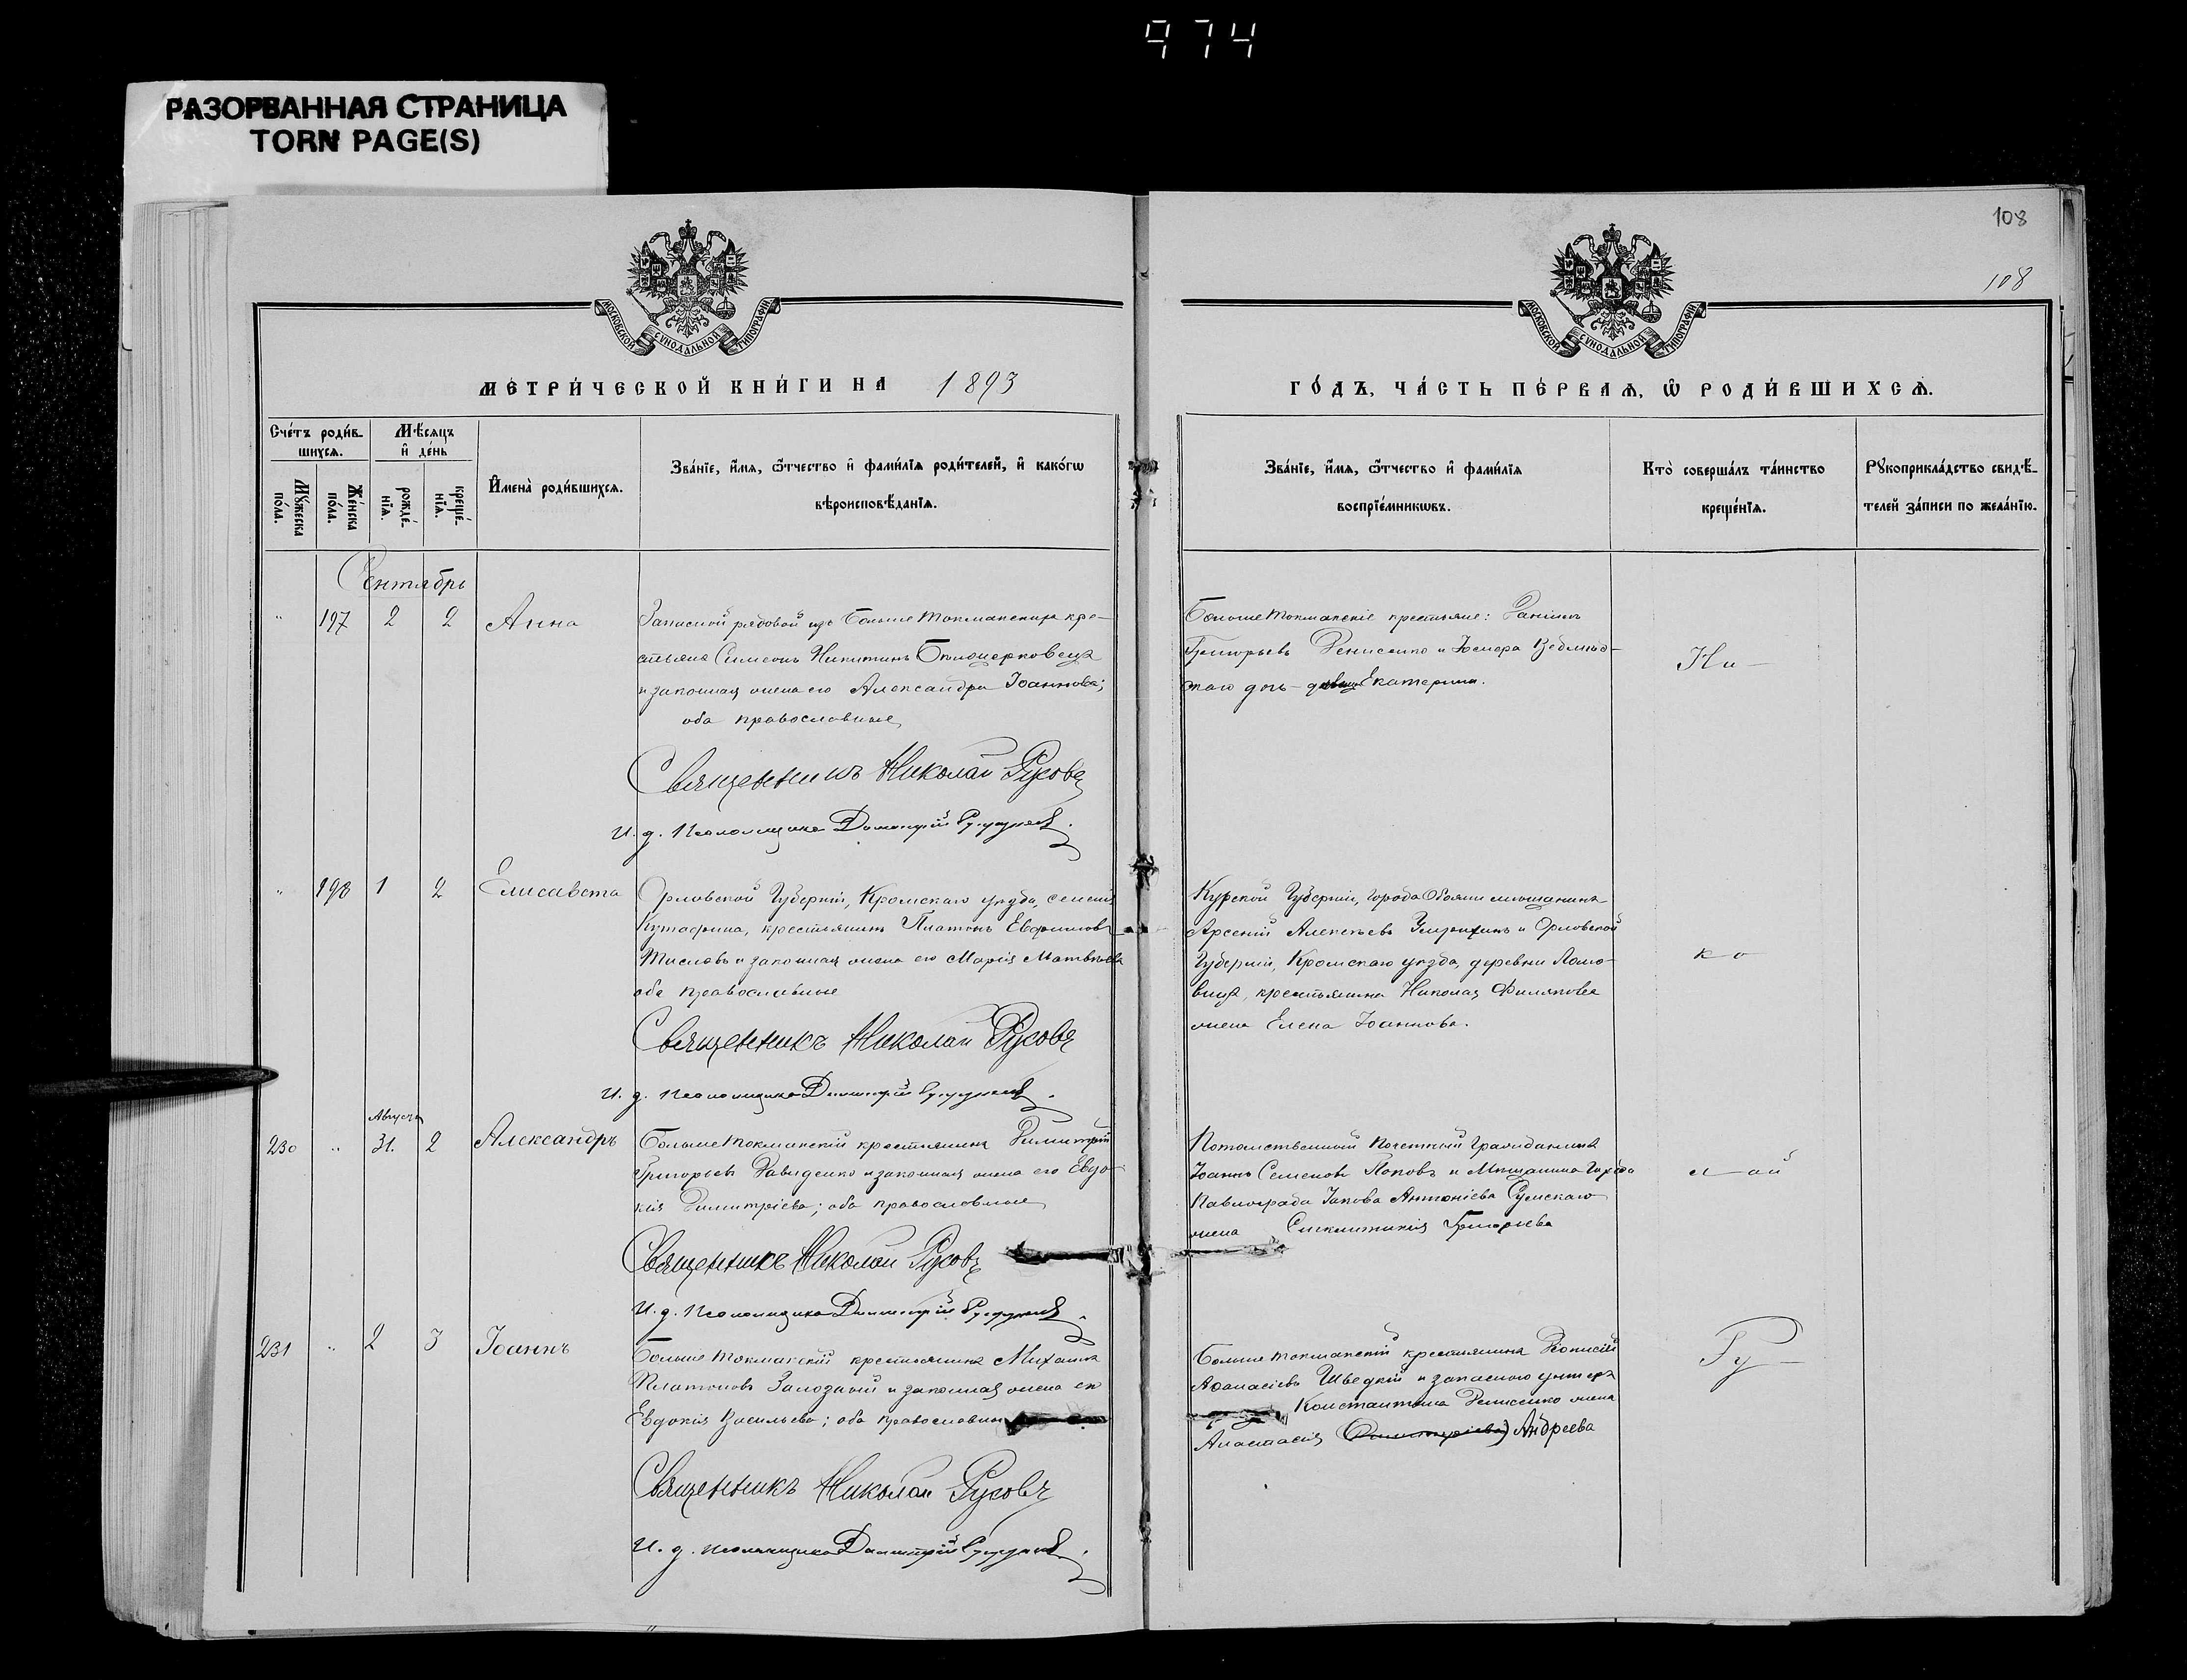 974
РАЗОРВАННАЯ СТРАНИЦА
TORN PAGE(S)
108
108
МОСКОВСКОЙ СѴНОДАЛЬНОЙ ТИПОГРАФІИ
МОСКОВСКОЙ СѴНОДАЛЬНОЙ ТИПОГРАФІИ
МЕТРИ́ЧЕСКОЙ КНИ́ГИ НА 1893
ГО́ДЪ, ЧА́СТЬ ПЕ́РВАѦ, Ѽ РОДИ́ВШИХСѦ.
Сче́тъ роди́в-
шихсѧ.
Мꙋ́жеска
по́ла.
Же́нска
по́ла.
Мѣ́сяцъ
и҆ де́нь
рожде́-
нїѧ.
креще́-
нїѧ.
И҆мена̀ роди́вшихсѧ.
Зва́нїе, и҆́мѧ, ѻ҆́тчество и҆ фами́лїѧ роди́телей, и҆ како́гѡ
вѣроисповѣ́данїѧ.
Зва́нїе, и҆́мѧ, ѻ҆́тчество и҆ фами́лїѧ
воспрїе́мникѡвъ.
Кто̀ соверша́лъ та́инство
креще́нїѧ.
Рꙋкоприкла́дство свидѣ́-
телей за́писи по жела́нїю.
Сентябрь
" 197 2 2 Анна
Запасной рядовой изъ Больше Токмакскихъ кре-
стьянъ Симеонъ Никитинъ
и законная жена его Александра Іоаннова;
оба православные
Священникъ Николай Русовъ
И. д. Псаломщика Димитрій
Больше Токмакскіе крестьяне:
Григорьевъ Денисенко и
дочь Екатерина.
Ни-
" 198 1 2 Елисавета
Орловской Губерніи, Кромскаго уѣзда, селенія
Кутафина, крестьянинъ Платонъ Евфимовъ
и законная жена его Марія Матвѣева
оба православные
Священникъ Николай Русовъ
И. д. Псаломщика Димитрій
Курской Губерніи, города Обояни мѣщанинъ
Арсеній Алексѣевъ и Орловской
Губерніи, Кромскаго уѣзда, деревни Ломо-
вица, крестьянина Николая Филипова
жена Елена Іоаннова.
ко
Августа
230 " 31. 2 Александръ
Больше Токмакскій крестьянинъ Димитрій
Григорьевъ Давиденко и законная жена его Евдо-
кія Димитріева; оба православные
Священникъ Николай Русовъ
И. д. Псаломщика Димитрій
Потомственный Почетный Гражданинъ
Іоаннъ Семеновъ Поповъ и Мѣщанина города
Павлограда Іакова Антоніева Сумскаго
жена Синклитикія Григорьева
лай
231 " 2 3 Іоаннъ
Больше Токмакскій крестьянинъ Михаилъ
Платоновъ Залозный и законная жена его
Евдокія Васильева; оба православные
Священникъ Николай Русовъ
И. д. Псаломщика Димитрій
Больше Токмакскій крестьянинъ Діонисій
Аѳанасіевъ Шведкій и запаснаго унтеръ
Константина Денисенко жена
Анастасія (Димитріева) Андреева
Ру-